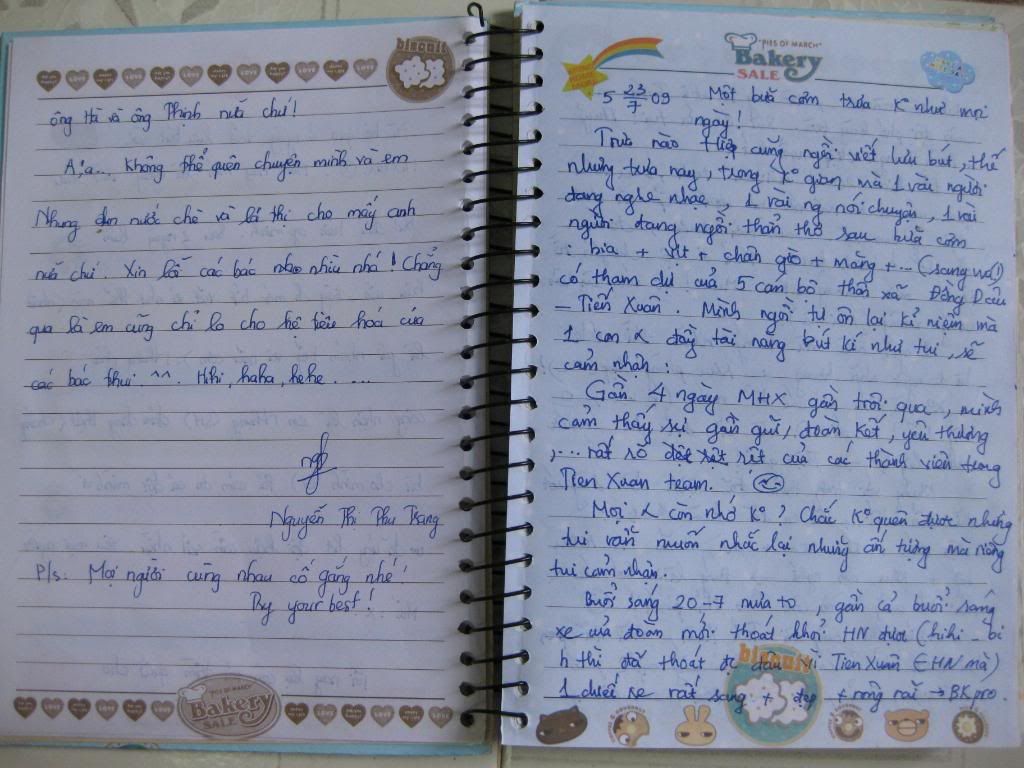 biscuit
LOVE LOVE LOVE
ông Hà và ông Thịnh nữa chứ!
A;a... không thể quên chuyện mình và em
Nhung đun nước chè và lá thi cho mấy anh
nữa chứ. Xin lỗi các bác nhìu nhá! Chẳng
qua là em cũng chỉ lo cho hệ tiêu hoá của
các bác thui. ^^. Hihi, haha, hehe. ....
Nguyễn Thị Thu Trang
P/s: Mọi người cùng nhau cố gắng nhé!
Try your best!
"PIES OF MARCH"
Bakery
SALE
"PIES OF MARCH"
Bakery
SALE
5 23/7 09 Một bữa cơm trưa K° như mọi
ngày!
Trưa nào Hiệp cũng ngồi viết lưu bút, thế
nhưng trưa nay, trong K° gian mà 1 vài người
đang nghe nhạc, 1 vài ng nói chuyện, 1 vài
người đang ngồi thẩn thơ sau bữa cơm
: bia + vịt + chân giò + măng +... (sang wá!)
có tham dự của 5 cán bộ thôn xã Đồng Dâu
– Tiến Xuân. Mình ngồi tự ôn lại kỉ niệm mà
1 con α đầy tài năng bút kí như tui, sẽ
cảm nhận:
Gần 4 ngày MHX gần trôi qua, mình
cảm thấy sự gần gũi, đoàn kết, yêu thương
,... rất rõ rệt của các thành viên trong
Tien Xuan team.
Mọi α còn nhớ K°? Chắc K° quên được nhưng
tui vẫn muốn nhắc lại những ấn tượng mà riêng
tui cảm nhận.
Buổi sáng 20-7 mưa to, gần cả buổi sáng
xe của đoàn mới thoát khỏi HN được (hihi - bi
h thì đã thoát đc đâu vì Tien Xuân ∈ HN mà)
1 chiếc xe rất sang + đẹp + rộng rãi → BK pro.
biscuit